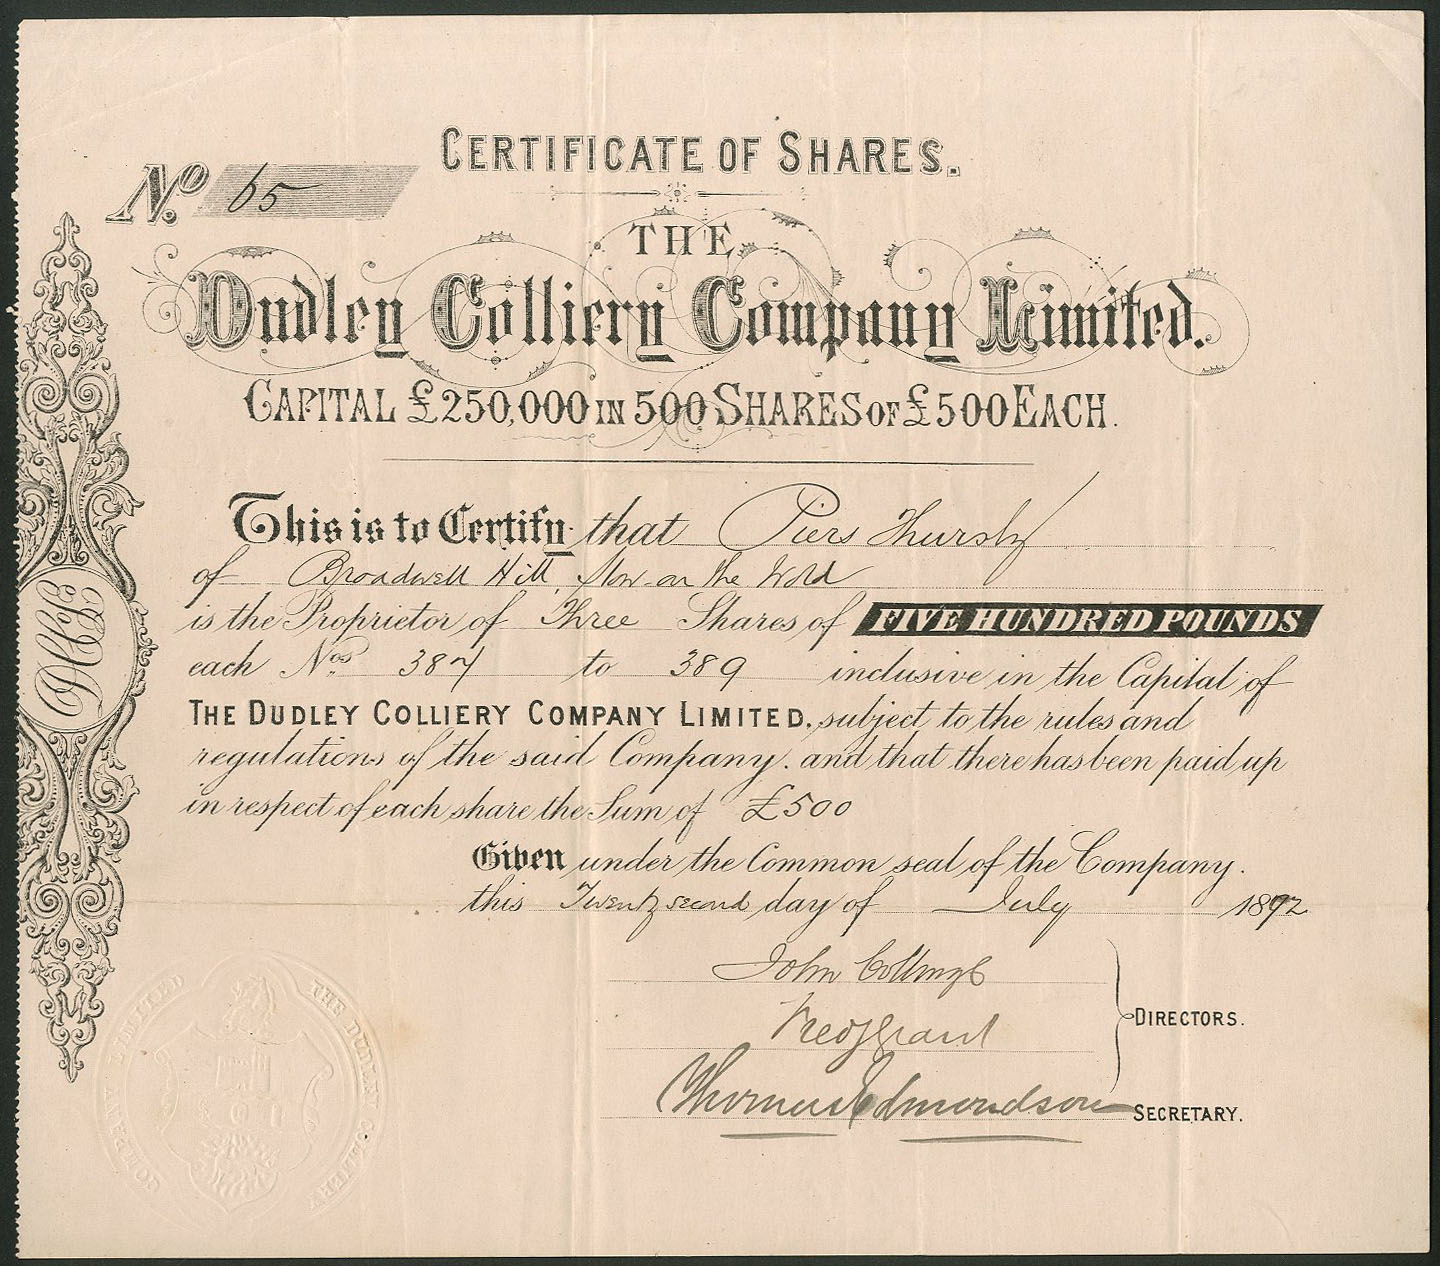 CERTIFICATE OF SHARES.
No. 65
THE
Dudley Colliery Company Limited.
CAPITAL £250,000 IN 500 SHARES OF £500 EACH.
This is to Certify that Piers Thursby
of Broadwell Hill, Stow-on the Wold
is the Proprietor of Three Shares of FIVE HUNDRED POUNDS
each Nos. 387 to 389 inclusive in the Capital of
THE DUDLEY COLLIERY COMPANY LIMITED. subject to the rules and
regulations of the said Company. and that there has been paid up
in respect of each share the Sum of £500
Given under the Common seal of the Company.
this Twenty second day of July 1892
John
DIRECTORS.
Thomas Edmondson SECRETARY.
THE DUDLEY COLLIERY COMPANY LIMITED